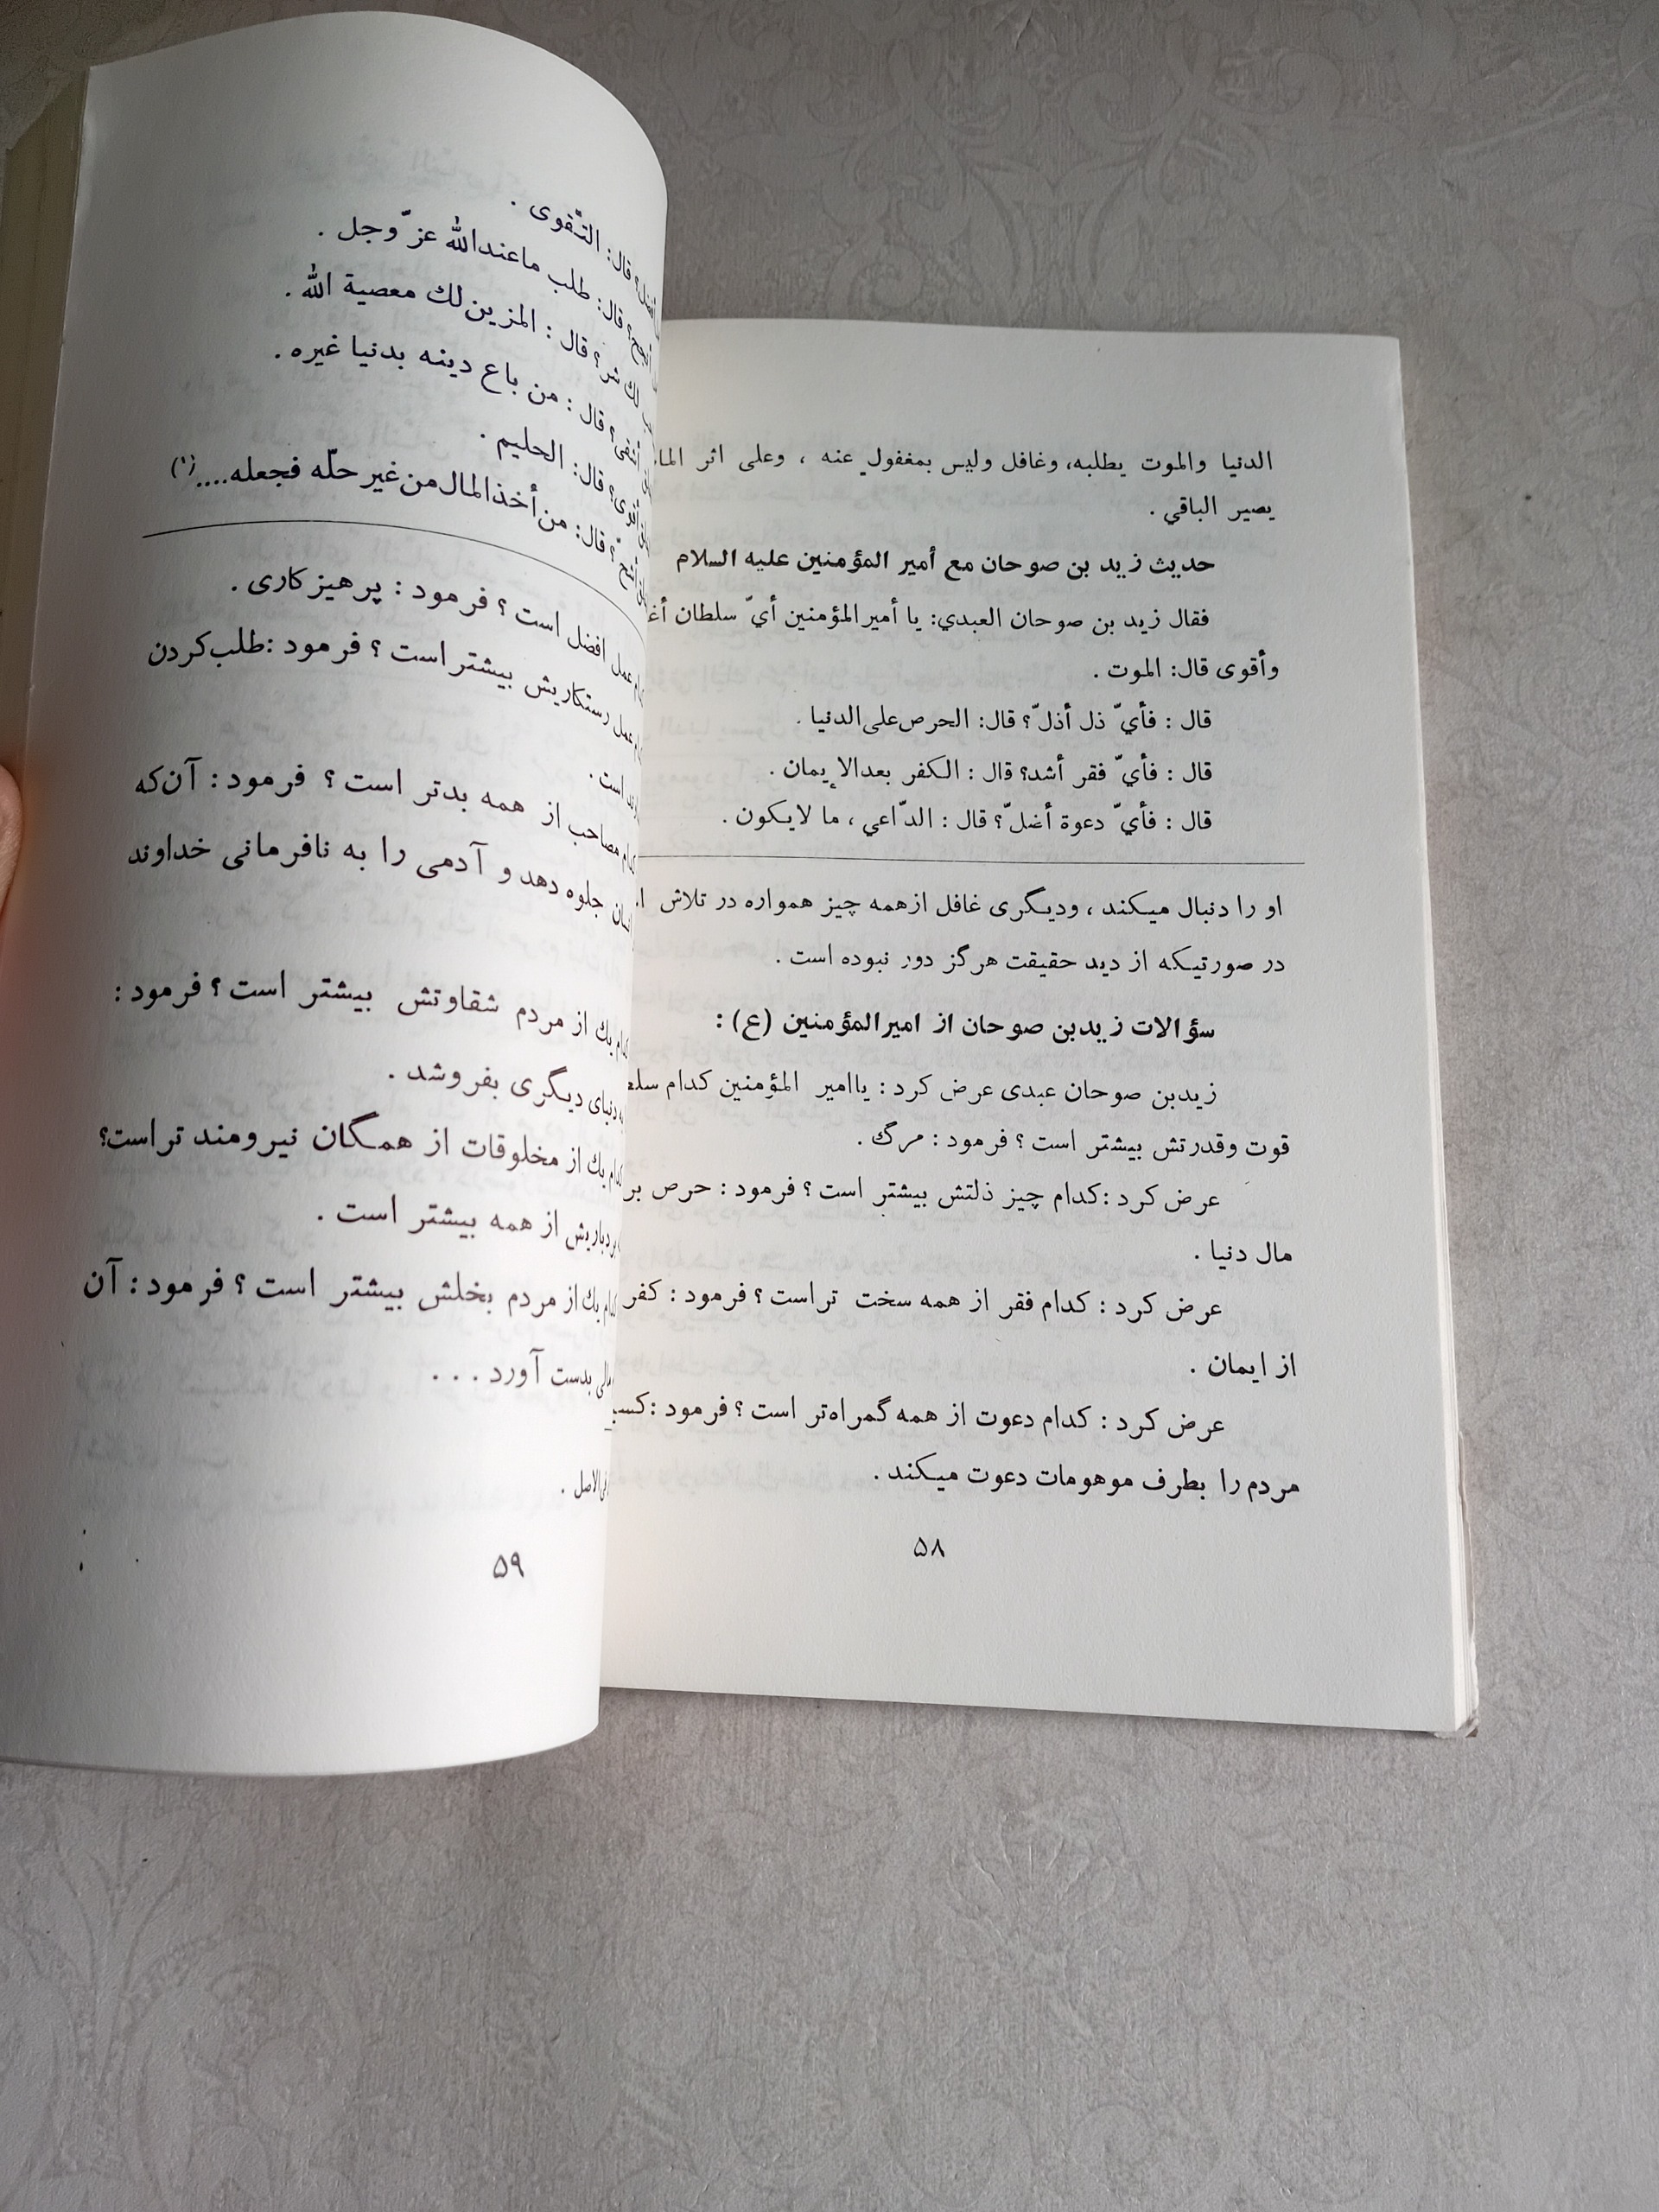 الدنيا والموت يطلبه، وغافل وليس بمغفول عنه ، وعلى اثر
يصير الباقي .
حديث زيد بن صوحان مع أمير المؤمنين عليه السلام
فقال زيد بن صوحان العبدي: يا أميرالمؤمنين أيّ سلطان
وأقوى قال: الموت .
قال : فأيّ ذل أذلّ؟ قال: الحرص على الدنيا .
قال : فأيّ فقر أشد؟ قال : الكفر بعد الإيمان .
قال : فأيّ دعوة أضلّ؟ قال : الدّاعي ، ما لايكون .
او را دنبال میکند ، ودیگری غافل ازهمه چیز همواره در تلاش
در صورتیکه از دید حقیقت هرگز دور نبوده است .
سؤالات زیدبن صوحان از امیرالمؤمنین (ع) :
زیدبن صوحان عبدی عرض کرد : یاامیر المؤمنین کدام
قوت وقدرتش بیشتر است ؟ فرمود : مرگ .
عرض کرد :کدام چیز ذلتش بیشتر است ؟ فرمود : حرص بر
مال دنیا .
عرض کرد : کدام فقر از همه سخت تراست ؟ فرمود : کفر
از ایمان .
عرض کرد : کدام دعوت از همه گمراه‌تر است ؟ فرمود :
مردم را بطرف موهومات دعوت میکند .
۵۸
قال: التّقوى .
قال: طلب ماعندالله عزّ وجل .
لك شر؟ قال : المزين لك معصية الله .
قال : من باع دينه بدنيا غيره .
قال: الحليم .
قال: من أخذ المال من غير حلّه فجعله....(۱)
عمل افضل است ؟ فرمود : پرهیزکاری .
عمل رستکاریش بیشتر است ؟ فرمود :طلب‌کردن
است .
مصاحب از همه بدتر است ؟ فرمود : آن‌که
جلوه دهد و آدمی را به نافرمانی خداوند
یك از مردم شقاوتش بیشتر است ؟ فرمود :
دنیای دیگری بفروشد .
یك از مخلوقات از همگان نیرومند تراست؟
بردباریش از همه بیشتر است .
یك از مردم بخلش بیشتر است ؟ فرمود : آن
بدست آورد . . .
الاصل .
۵۹